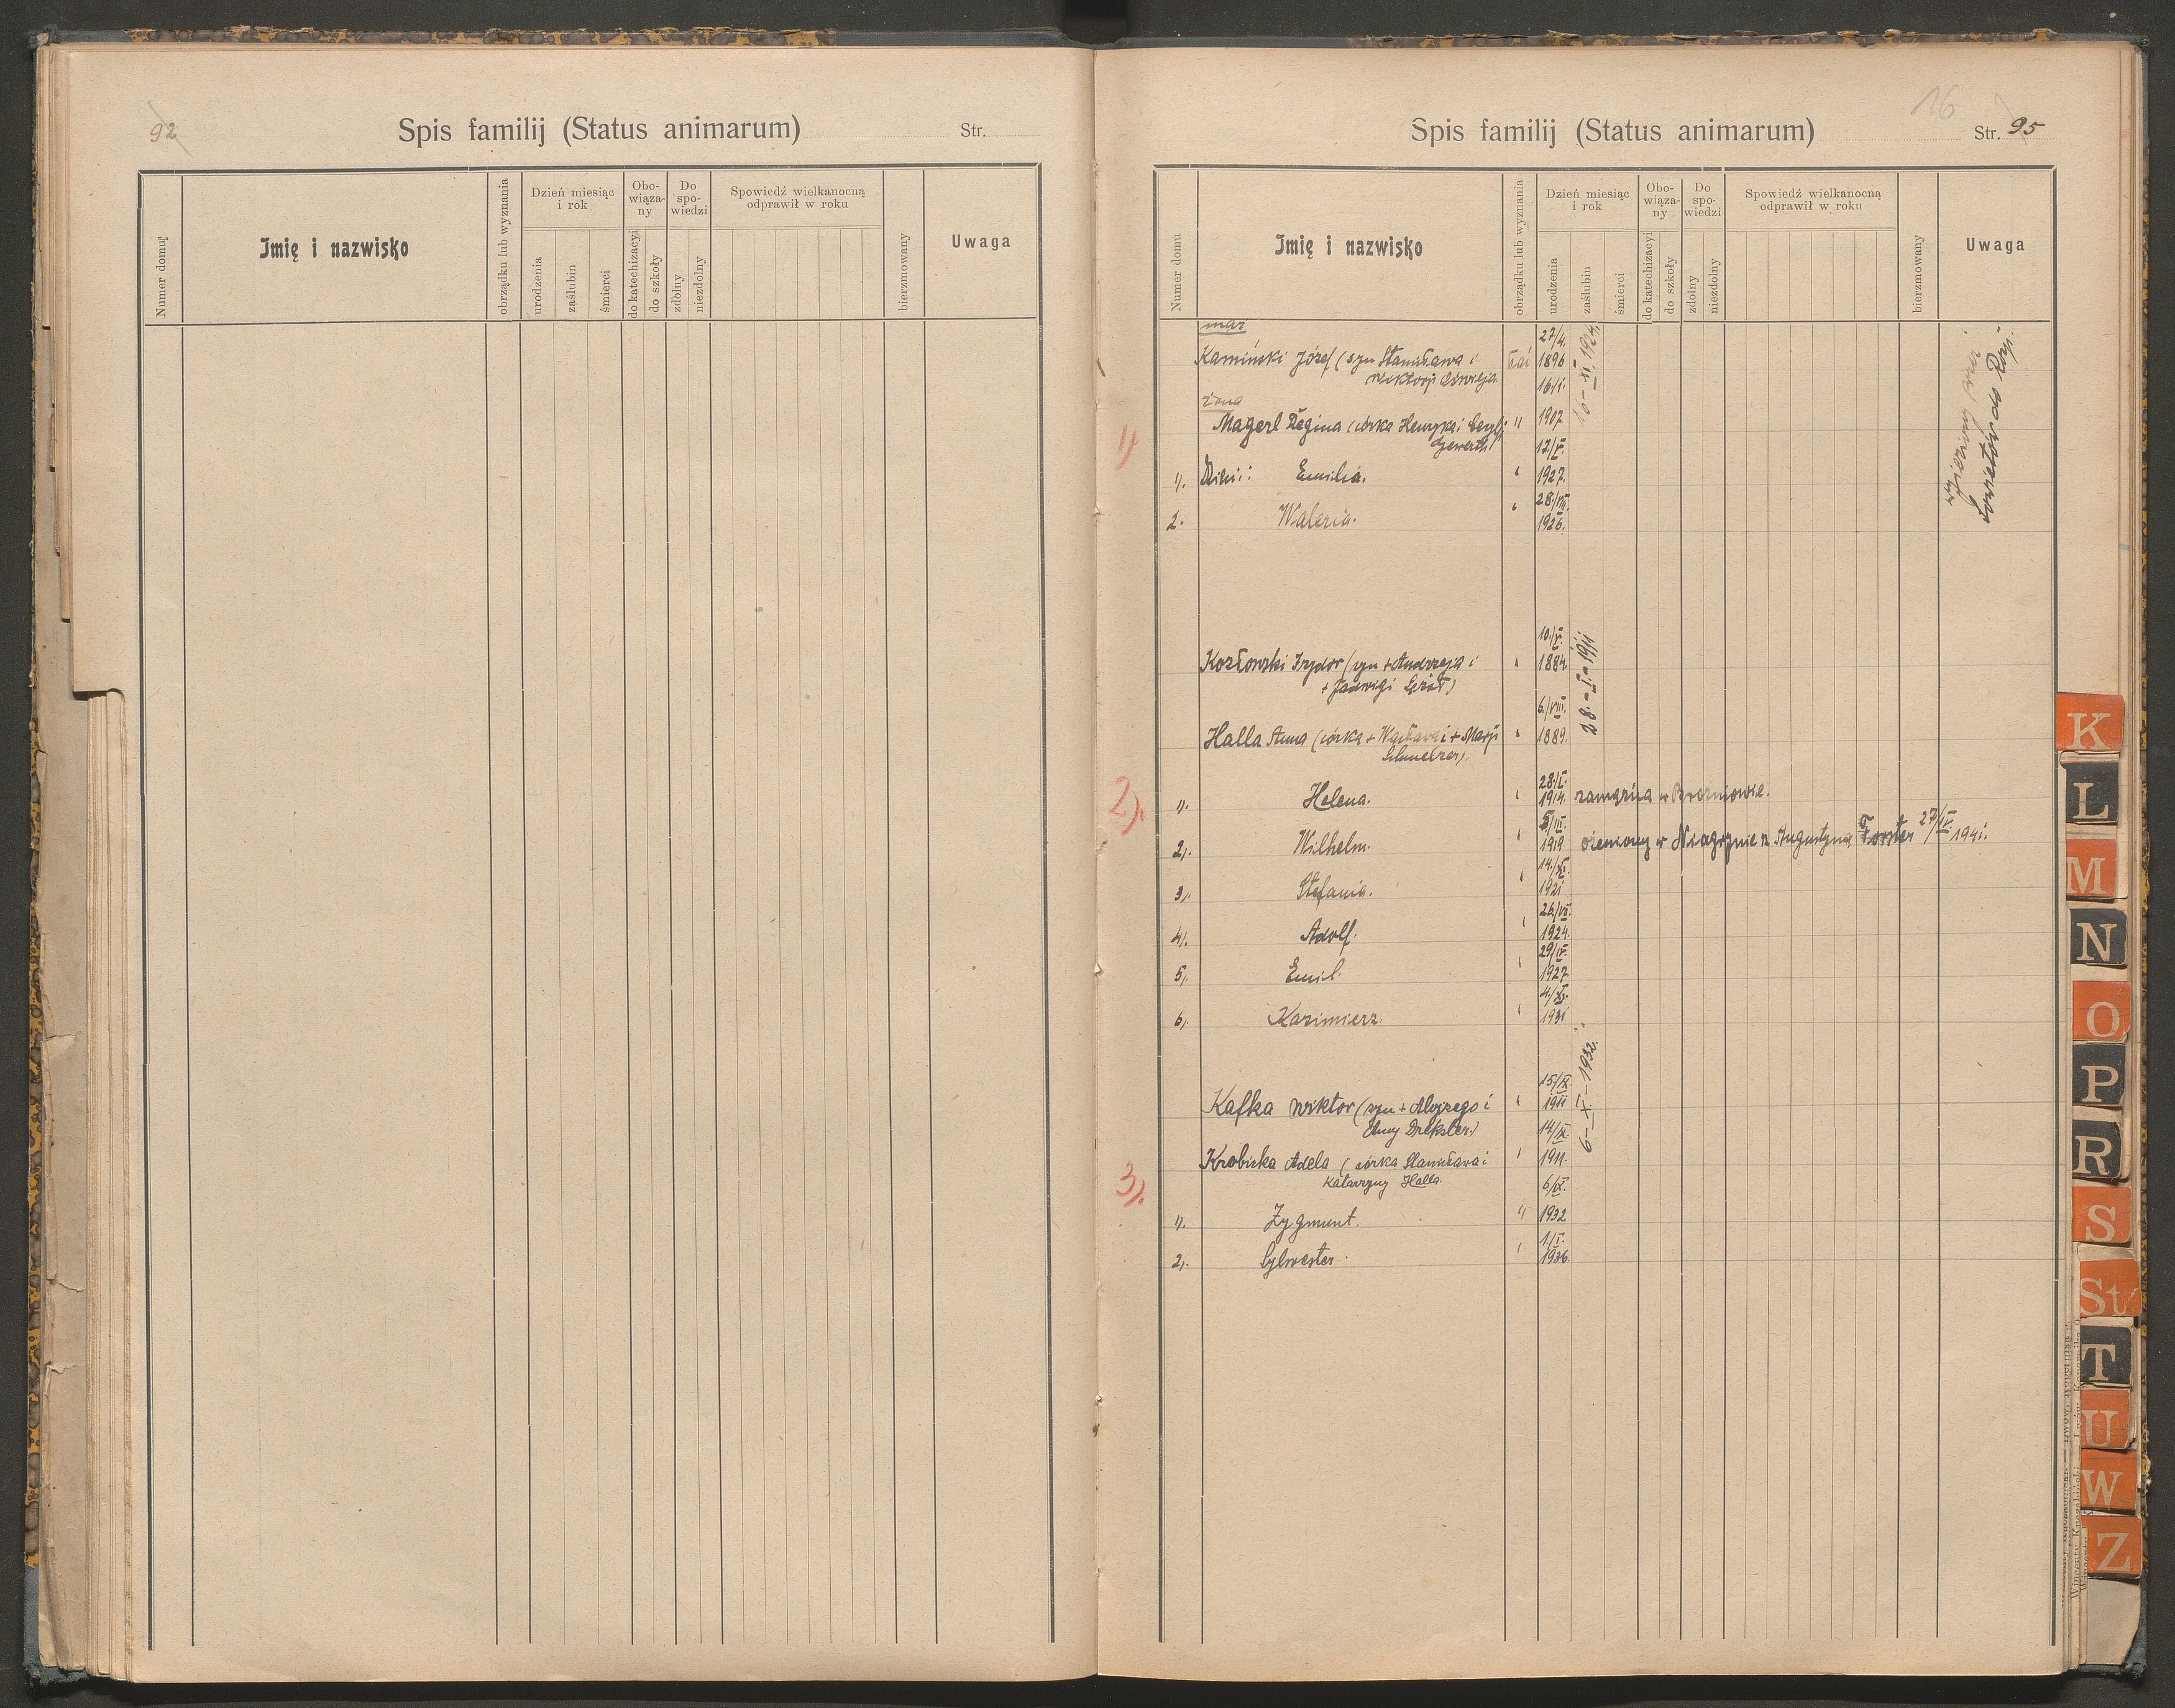 92
Spis familij (Status animarum)
Str.
Numer domu
Imię i nazwisko
obrządku lub wyznania
Dzień miesiąc
i rok
urodzenia
zaślubin
śmierci
Obo-
wiąza-
ny
do katechizacyi
do szkoły
Do
spo-
wiedzi
zdolny
niezdolny
Spowiedź wielkanocną
odprawił w roku
bierzmowany
Uwaga
16
Spis familij (Status animarum)
Str. 95
Numer domu
Imię i nazwisko
obrządku lub wyznania
Dzień miesiąc
i rok
urodzenia
zaślubin
śmierci
Obo-
wiąza-
ny
do katechizacyi
do szkoły
Do
spo-
wiedzi
zdolny
niezdolny
Spowiedź wielkanocną
odprawił w roku
bierzmowany
Uwaga
1)
mąż
27/4.
Kamiński Józef (syn Stanisława i łać 1896
Wiktorji
16/I.
16-XI.1924.
żona
Magerl Regina (córka Henryka i " 1907
17/V.
1). Dzieci: Emilia. 1927.
28./VIII.
2. Waleria. 1926.
do Rosji.
2).
10./V.
Kozłowski Izydor (syn + Andrzeja i 1884
+ Jadwigi
28.-I-1911
6./VIII.
Halla Anna (córka + Wacława i + Marji 1889.
Schmelzer).
28./I.
1). Helena. 1914. zamężna w
5/III.
2). Wilhelm. 1919 ożeniony w z Augustyną Forster 27/IV 1941.
14./XI.
3). Stefania. 1921
26./VII.
4). Adolf. 1924.
29/IV.
5). Emil. 1927
4./XI.
6). Kazimierz. 1931
3).
15/IX.
Kafka Wiktor (syn + Alojzego i 1911
Anny Dreksler.)
6-X-1932.
14/IX
Krobicka Adela (córka Stanisława i 1911.
Katarzyny Halla.
6/IX.
1). Zygmunt. " 1932
1./I.
2). Sylwester. 1936.
K
L
M
N
O
P
R
S
St
T
U
W
Z